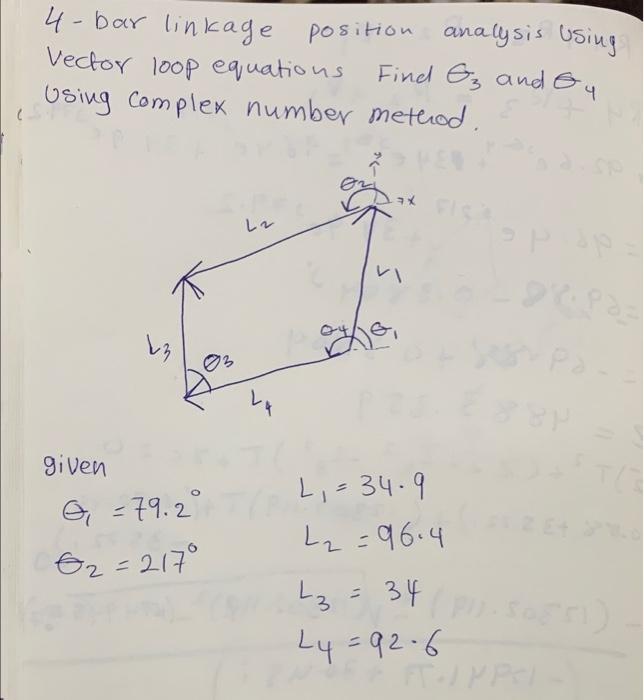 4-bar linkage position analysis Using
Vector loop equations Find θ3 and θ4
Using complex number method.
θ2
x
L2
L1
L3
θ3
θ4
θ1
L4
given
θ1 = 79.2°
θ2 = 217°
L1 = 34.9
L2 = 96.4
L3 = 34
L4 = 92.6